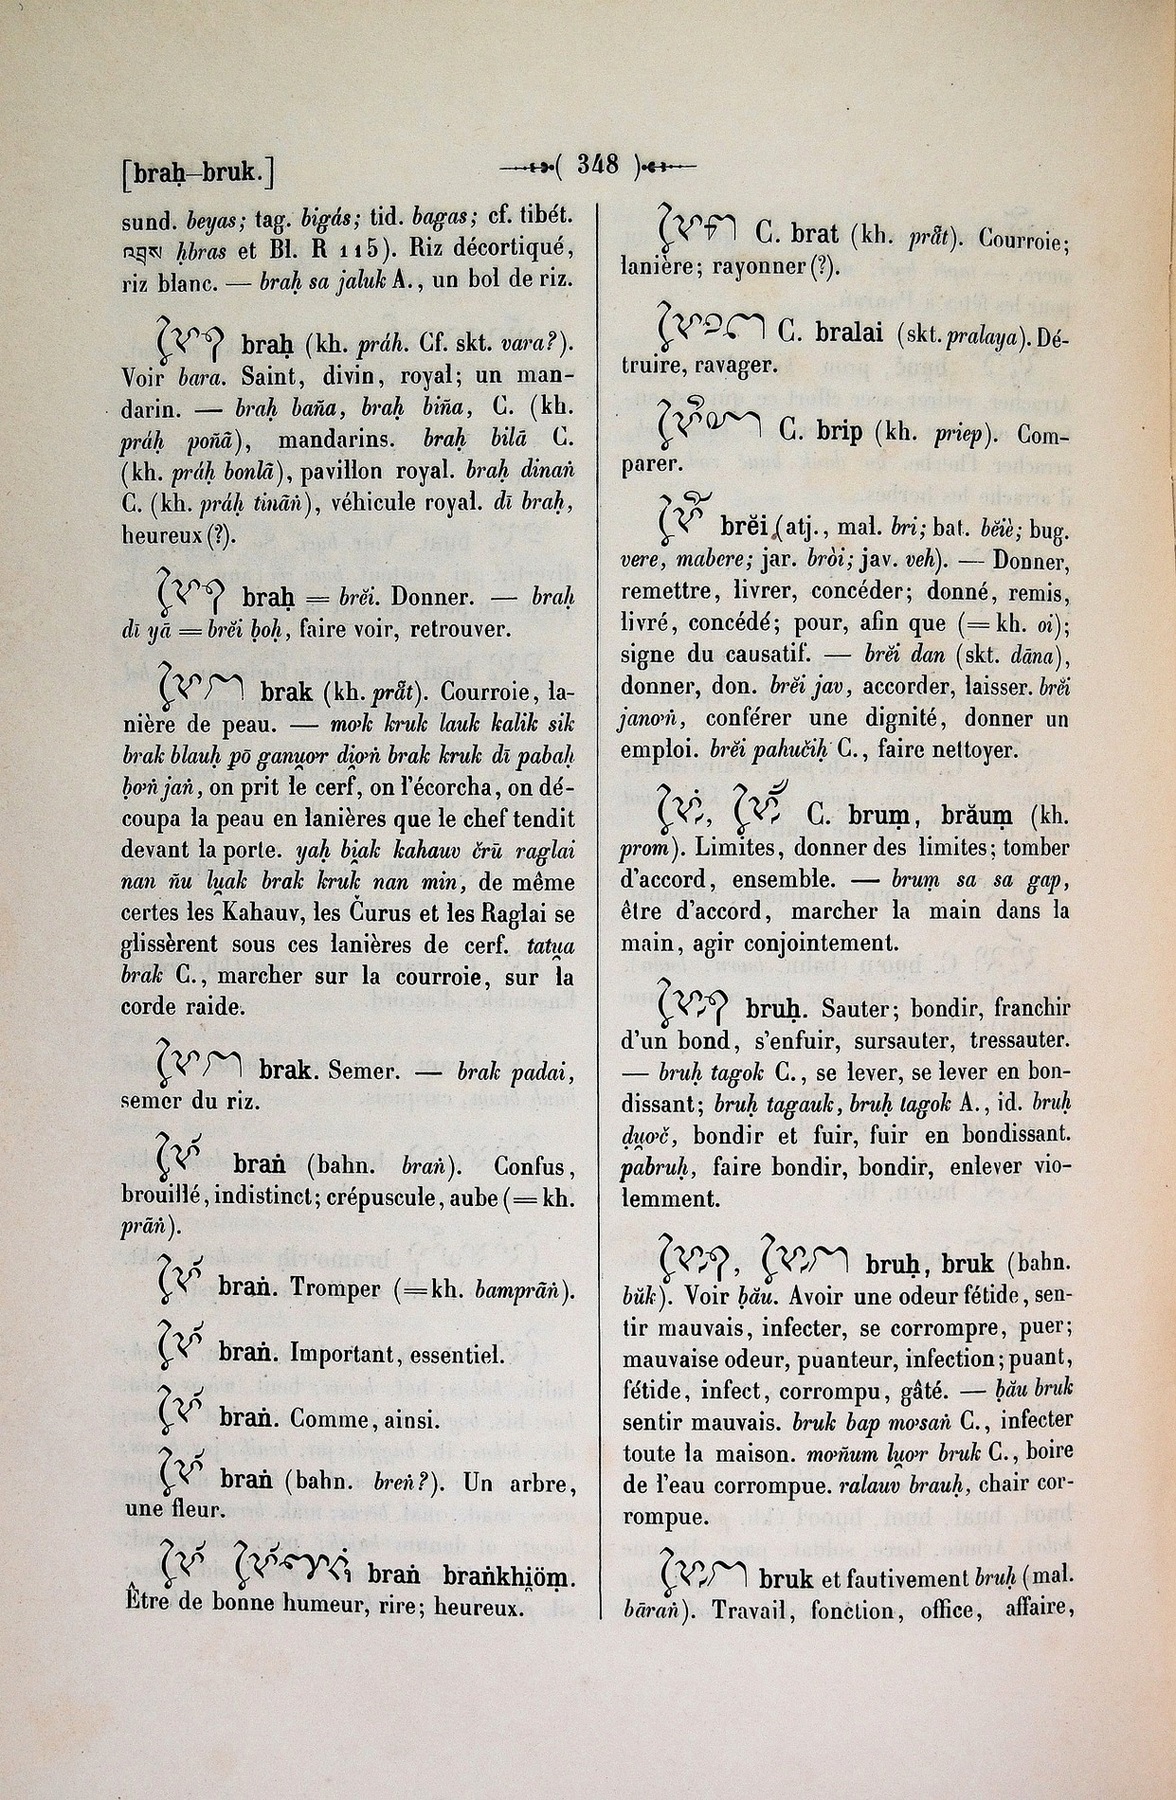 [braḥ—bruk.]
( 348 )
sund. beyas; tag. bigás; tid. bagas; cf. tibét.
ḥbras et Bl. R 115). Riz décortiqué,
riz blanc. — braḥ sa jaluk A., un bol de riz.
braḥ (kh. práh. Cf. skt. vara?).
Voir bara. Saint, divin, royal; un man-
darin. — braḥ baña, braḥ biña, C. (kh.
práḥ poñā), mandarins. braḥ bilā C.
(kh. práḥ bonlā), pavillon royal. braḥ dinaṅ
C. (kh. práḥ tināṅ), véhicule royal. dī braḥ,
heureux (?).
braḥ = brĕi. Donner. — braḥ
dī yā = brĕi ḅoḥ, faire voir, retrouver.
brak (kh. prāt). Courroie, la-
nière de peau. — mơk kruk lauk kalik sik
brak blauḥ pō ganṷơr di̭ơṅ brak kruk dī pabaḥ
ḅơṅ jaṅ, on prit le cerf, on l'écorcha, on dé-
coupa la peau en lanières que le chef tendit
devant la porte. yaḥ bi̭ak kahauv črū raglai
nan ñu lṷak brak kruk nan min, de même
certes les Kahauv, les Čurus et les Raglai se
glissèrent sous ces lanières de cerf. tatṷa
brak C., marcher sur la courroie, sur la
corde raide.
brak. Semer. — brak padai,
semer du riz.
braṅ (bahn. braṅ). Confus,
brouillé, indistinct; crépuscule, aube (= kh.
prāṅ).
braṅ. Tromper (= kh. bamprāṅ).
braṅ. Important, essentiel.
braṅ. Comme, ainsi.
braṅ (bahn. breṅ?). Un arbre,
une fleur.
braṅ braṅkhi̭öṃ.
Être de bonne humeur, rire; heureux.
C. brat (kh. prāt). Courroie;
lanière; rayonner (?).
C. bralai (skt. pralaya). Dé-
truire, ravager.
C. brip (kh. priep). Com-
parer.
brĕi (atj., mal. bri; bat. bĕiè; bug.
vere, mabere; jar. bròi; jav. veh). — Donner,
remettre, livrer, concéder; donné, remis,
livré, concédé; pour, afin que (= kh. oi);
signe du causatif. — brĕi dan (skt. dāna),
donner, don. brĕi jav, accorder, laisser. brĕi
janơṅ, conférer une dignité, donner un
emploi. brĕi pahučiḥ C., faire nettoyer.
C. bruṃ, brăuṃ (kh.
prom). Limites, donner des limites; tomber
d'accord, ensemble. — bruṃ sa sa gap,
être d'accord, marcher la main dans la
main, agir conjointement.
bruḥ. Sauter; bondir, franchir
d'un bond, s'enfuir, sursauter, tressauter.
— bruḥ tagok C., se lever, se lever en bon-
dissant; bruḥ tagauk, bruḥ tagok A., id. bruḥ
ḍṷơč, bondir et fuir, fuir en bondissant.
pabruḥ, faire bondir, bondir, enlever vio-
lemment.
bruḥ, bruk (bahn.
bŭk). Voir ḅău. Avoir une odeur fétide, sen-
tir mauvais, infecter, se corrompre, puer;
mauvaise odeur, puanteur, infection; puant,
fétide, infect, corrompu, gâté. — ḅău bruk
sentir mauvais. bruk bap mơsaṅ C., infecter
toute la maison. mơñum lṷơr bruk C., boire
de l'eau corrompue. ralauv brauḥ, chair cor-
rompue.
bruk et fautivement bruḥ (mal.
bāraṅ). Travail, fonction, office, affaire,